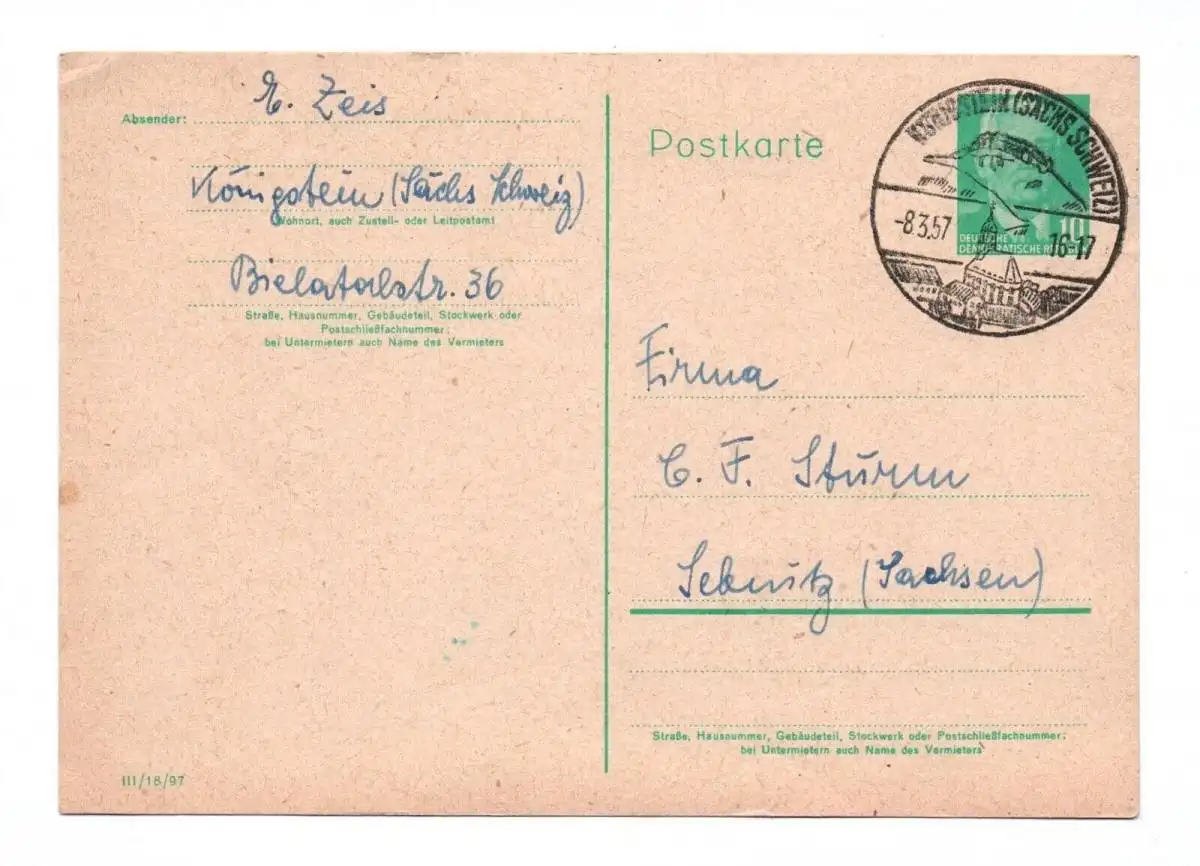 Absender:
E. Zeis
Königstein (Sächs Schweiz)
Wohnort, auch Zustell- oder Leitpostamt
Bielatalstr. 36
Straße, Hausnummer, Gebäudeteil, Stockwerk oder
Postschließfachnummer;
bei Untermietern auch Name des Vermieters
III/18/97
Postkarte
KÖNIGSTEIN (SÄCHS. SCHWEIZ)
-8.3.57
16-17
10
DEUTSCHE
DEMOKRATISCHE
Firma
C. F. Sturm
Sebnitz (Sachsen)
Straße, Hausnummer, Gebäudeteil, Stockwerk oder Postschließfachnummer;
bei Untermietern auch Name des Vermieters